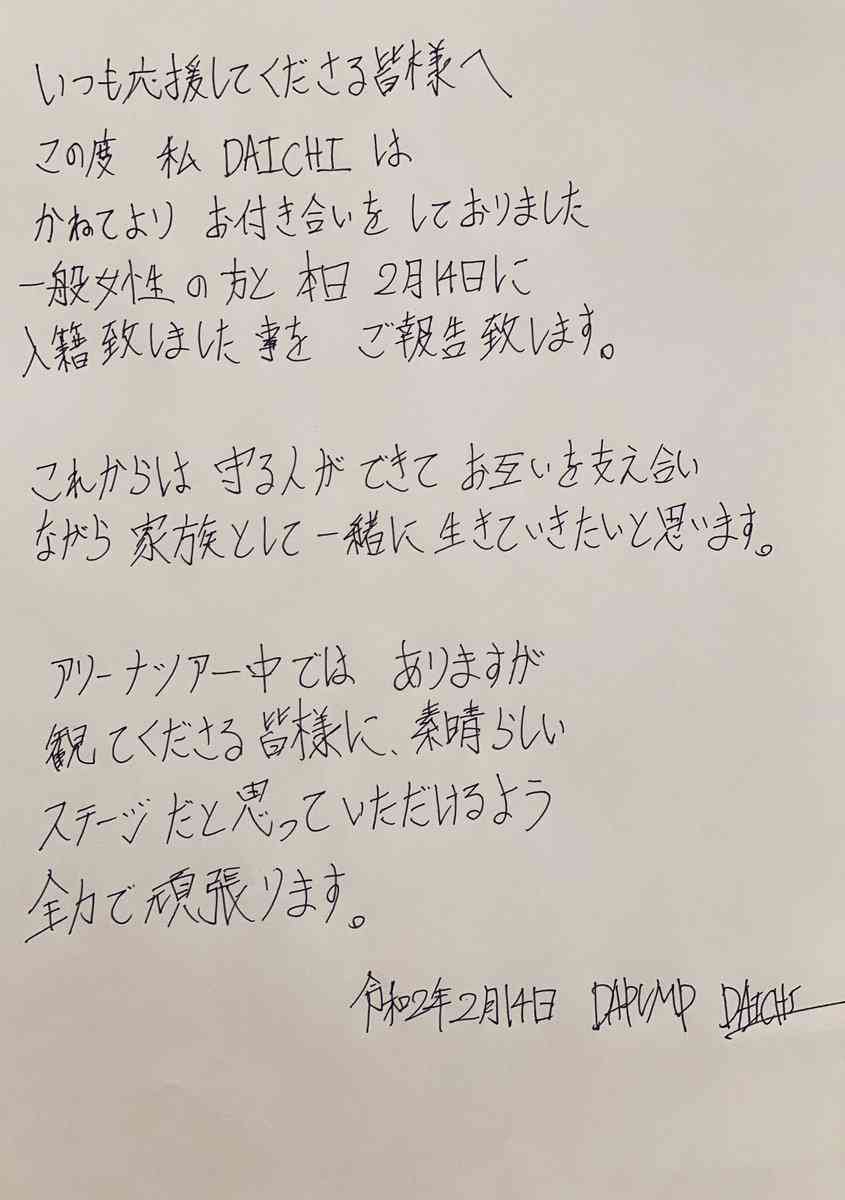 いつも応援してくださる皆様へ
この度 私 DAICHI は
かねてより お付き合いを しておりました
一般女性の方と 本日 2月14日に
入籍致しました事を ご報告致します。
これからは 守る人が できて お互いを支え合い
ながら 家族として一緒に 生きていきたいと思います。
アリーナツアー中では ありますが
観てくださる皆様に、素晴らしい
ステージだと思っていただけるよう
全力で頑張ります。
令和2年2月14日 DAPUMP DAICHI